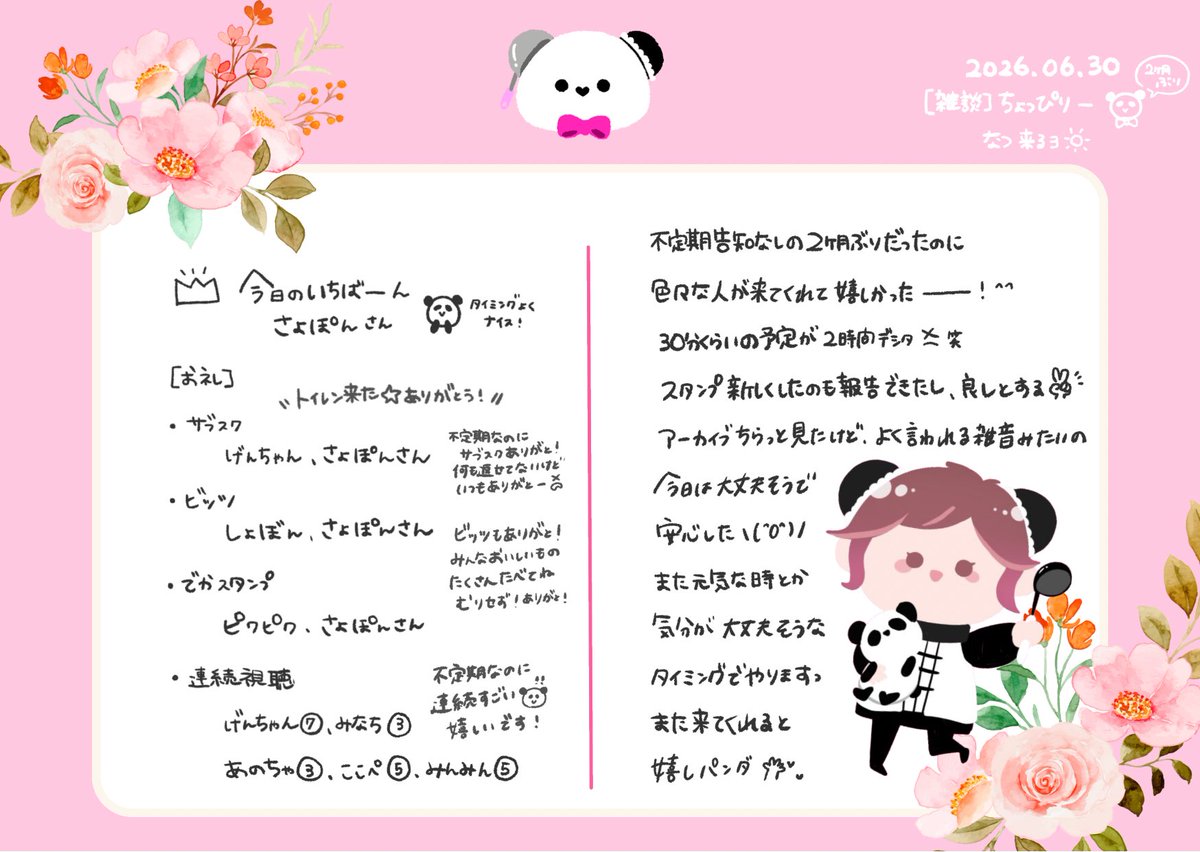 2026.06.30
[雑談]ちょっぴりー
2ヶ月
ぶり
なつ来るヨ
今日のいちばーん
さよぽんさん
タイミングよく
ナイス!
[お礼]
トイレン来た☆ありがとう!
・サブスク
げんちゃん、さよぽんさん
不定期なのに
サブスクありがと!
何も返せてないけど
いつもありがとー
・ビッツ
しょぼん、さよぽんさん
ビッツもありがと!
みんなおいしいもの
たくさんたべてね
むりせず!ありがと!
・でかスタンプ
ピクピク、さよぽんさん
・連続視聴
不定期なのに
連続すごい!!
嬉しいです!
げんちゃん⑦、みなち③
あのちゃ③、ここぺ⑤、みんみん⑤
不定期告知なしの2ヶ月ぶりだったのに
色々な人が来てくれて嬉しかった――!^^
30分くらいの予定が2時間デシタ 笑
スタンプ新しくしたのも報告できたし、良しとする
アーカイブちらっと見たけど、よく言われる雑音みたいの
今日は大丈夫そうで
安心したヽ(^0^)ノ
また元気な時とか
気分が大丈夫そうな
タイミングでやりますっ
また来てくれると
嬉しパンダ